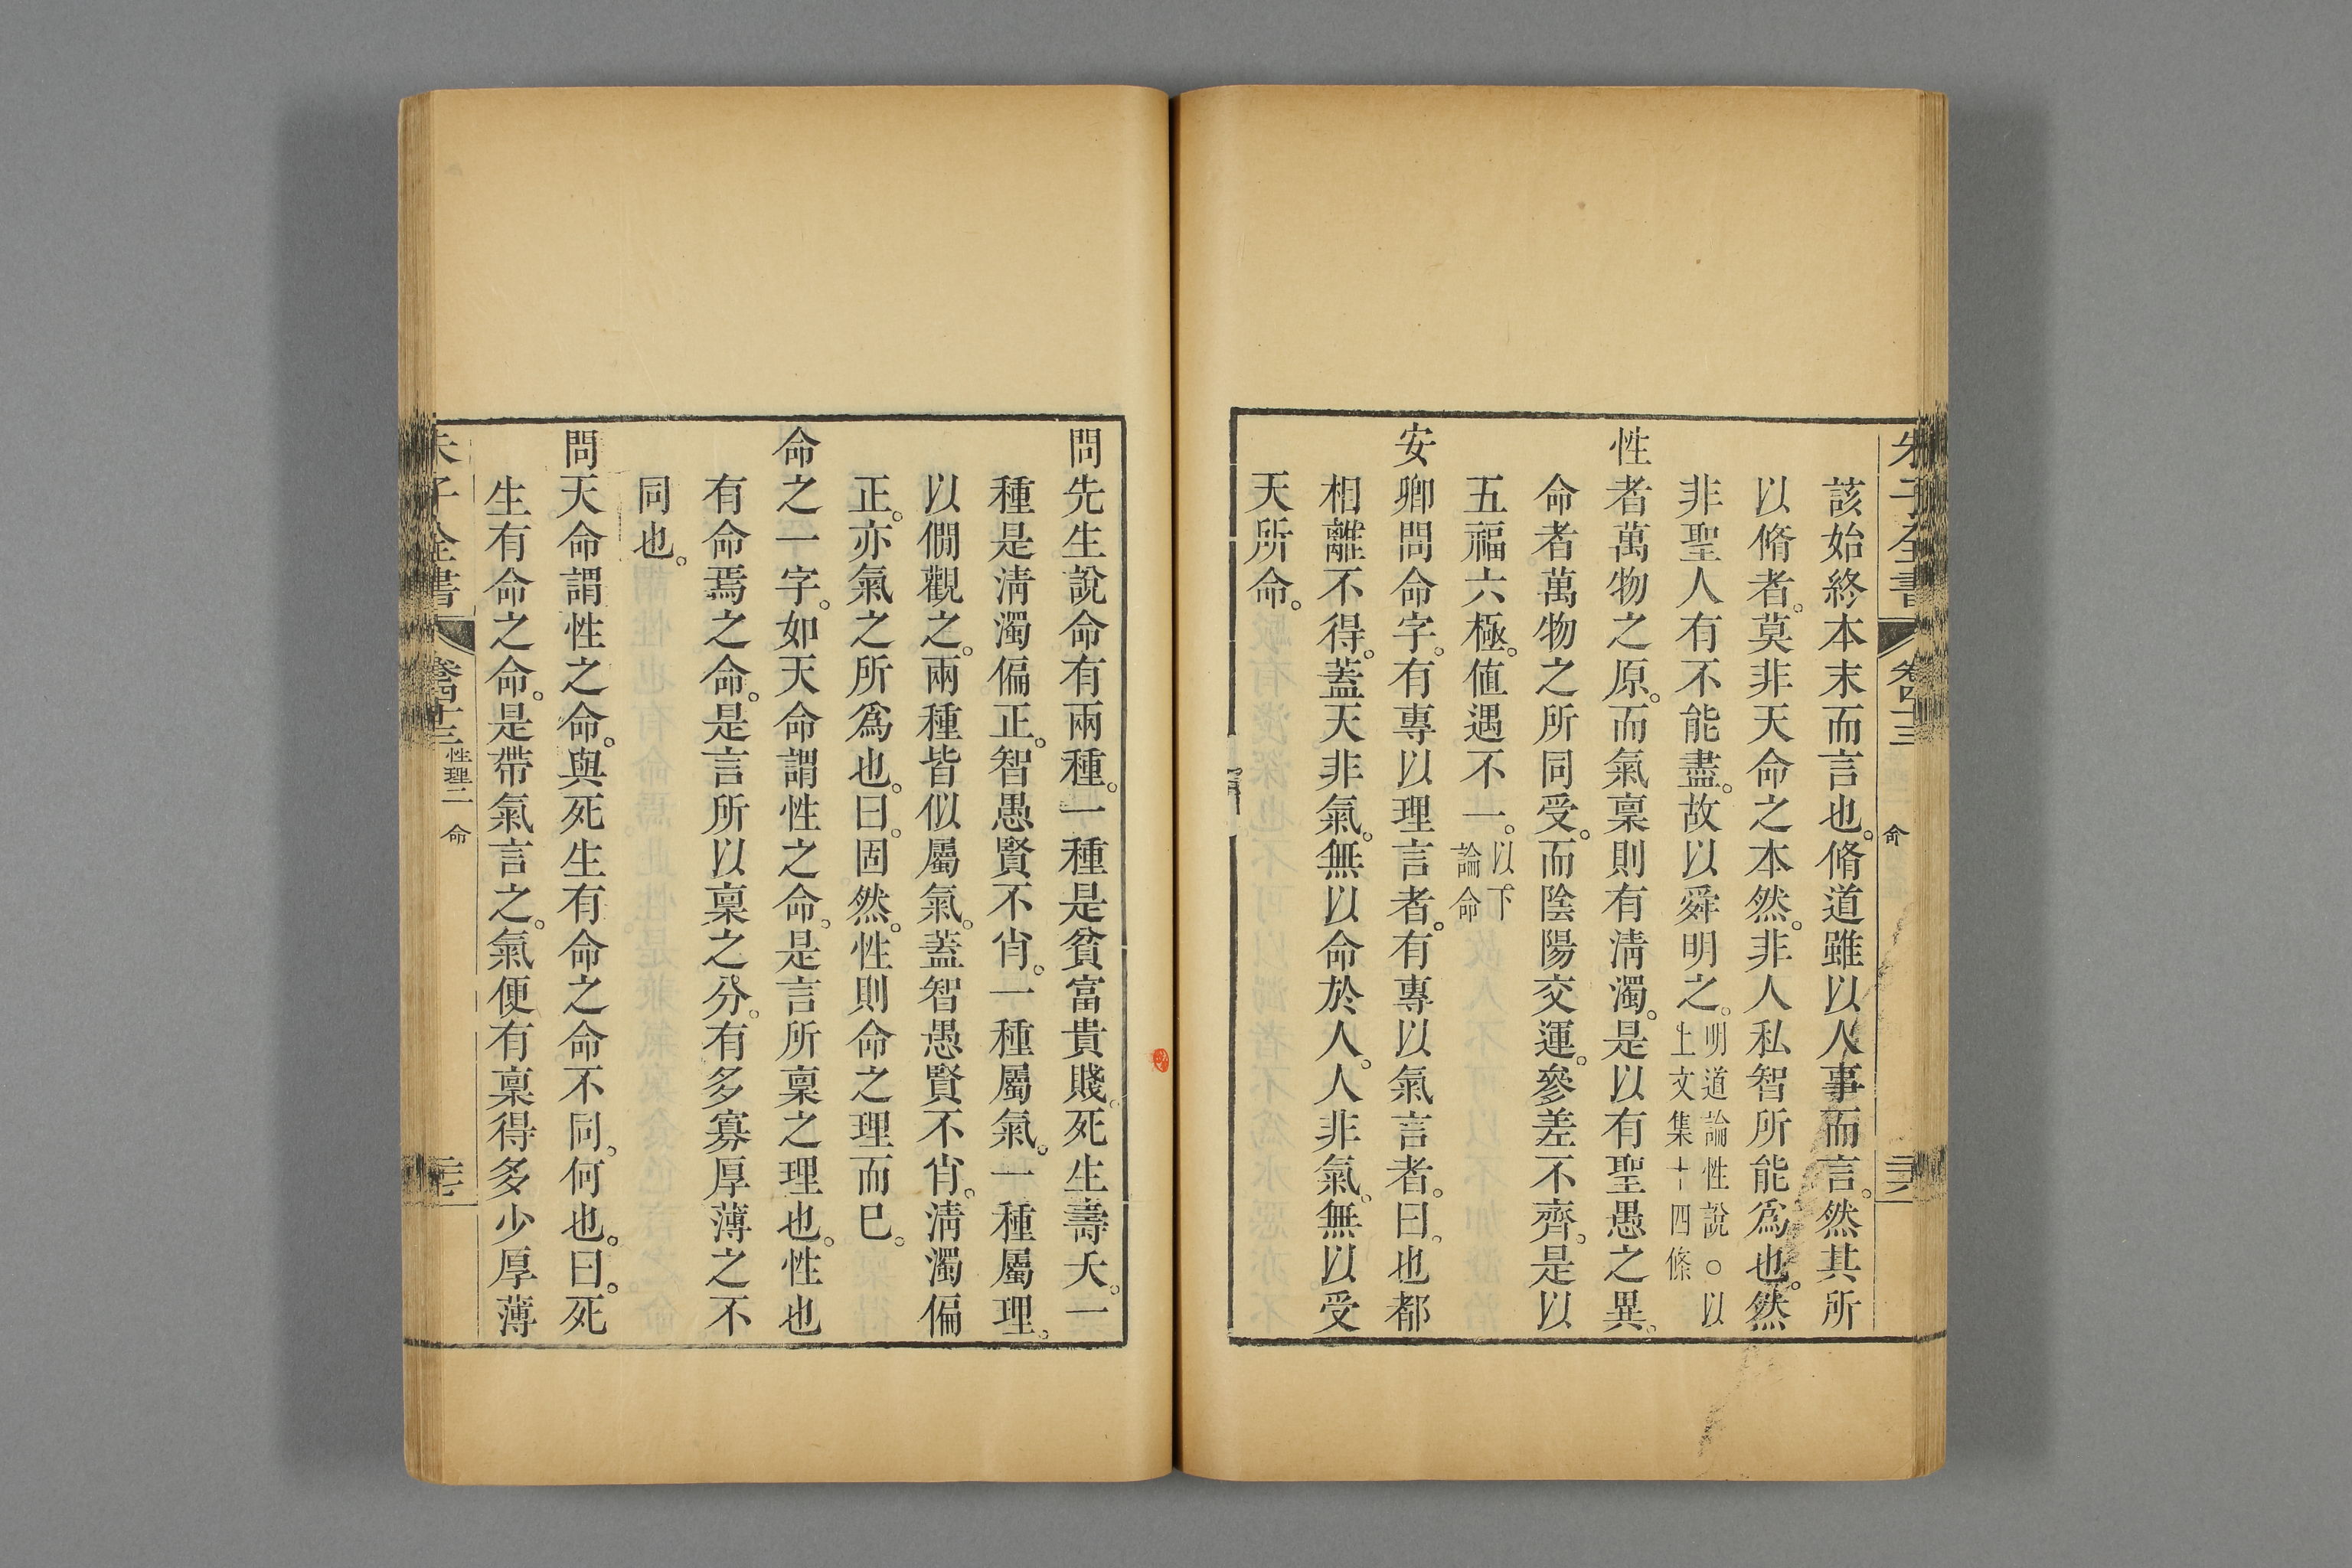 朱子全書 卷四十三 命 三六
該始終本末而言也。脩道雖以人事而言。然其所
以脩者。莫非天命之本然。非人私智所能爲也。然
非聖人有不能盡。故以舜明之。明道論性說○以
上文集十四條
性者萬物之原。而氣稟則有淸濁。是以有聖愚之異。
命者萬物之所同受。而陰陽交運。參差不齊。是以
五福六極。値遇不一。以下
論命
安卿問命字。有專以理言者。有專以氣言者。曰。也都
相離不得。蓋天非氣。無以命於人。人非氣。無以受
天所命。
問先生說命有兩種。一種是貧富貴賤。死生壽夭。一
種是淸濁偏正。智愚賢不肖。一種屬氣。一種屬理。
以僩觀之。兩種皆似屬氣。蓋智愚賢不肖。淸濁偏
正。亦氣之所爲也。曰。固然。性則命之理而已。
命之一字。如天命謂性之命。是言所稟之理也。性也
有命焉之命。是言所以稟之分。有多寡厚薄之不
同也。
問天命謂性之命。與死生有命之命不同。何也。曰。死
生有命之命。是帶氣言之。氣便有稟得多少厚薄
朱子全書 卷四十三 性理二 命